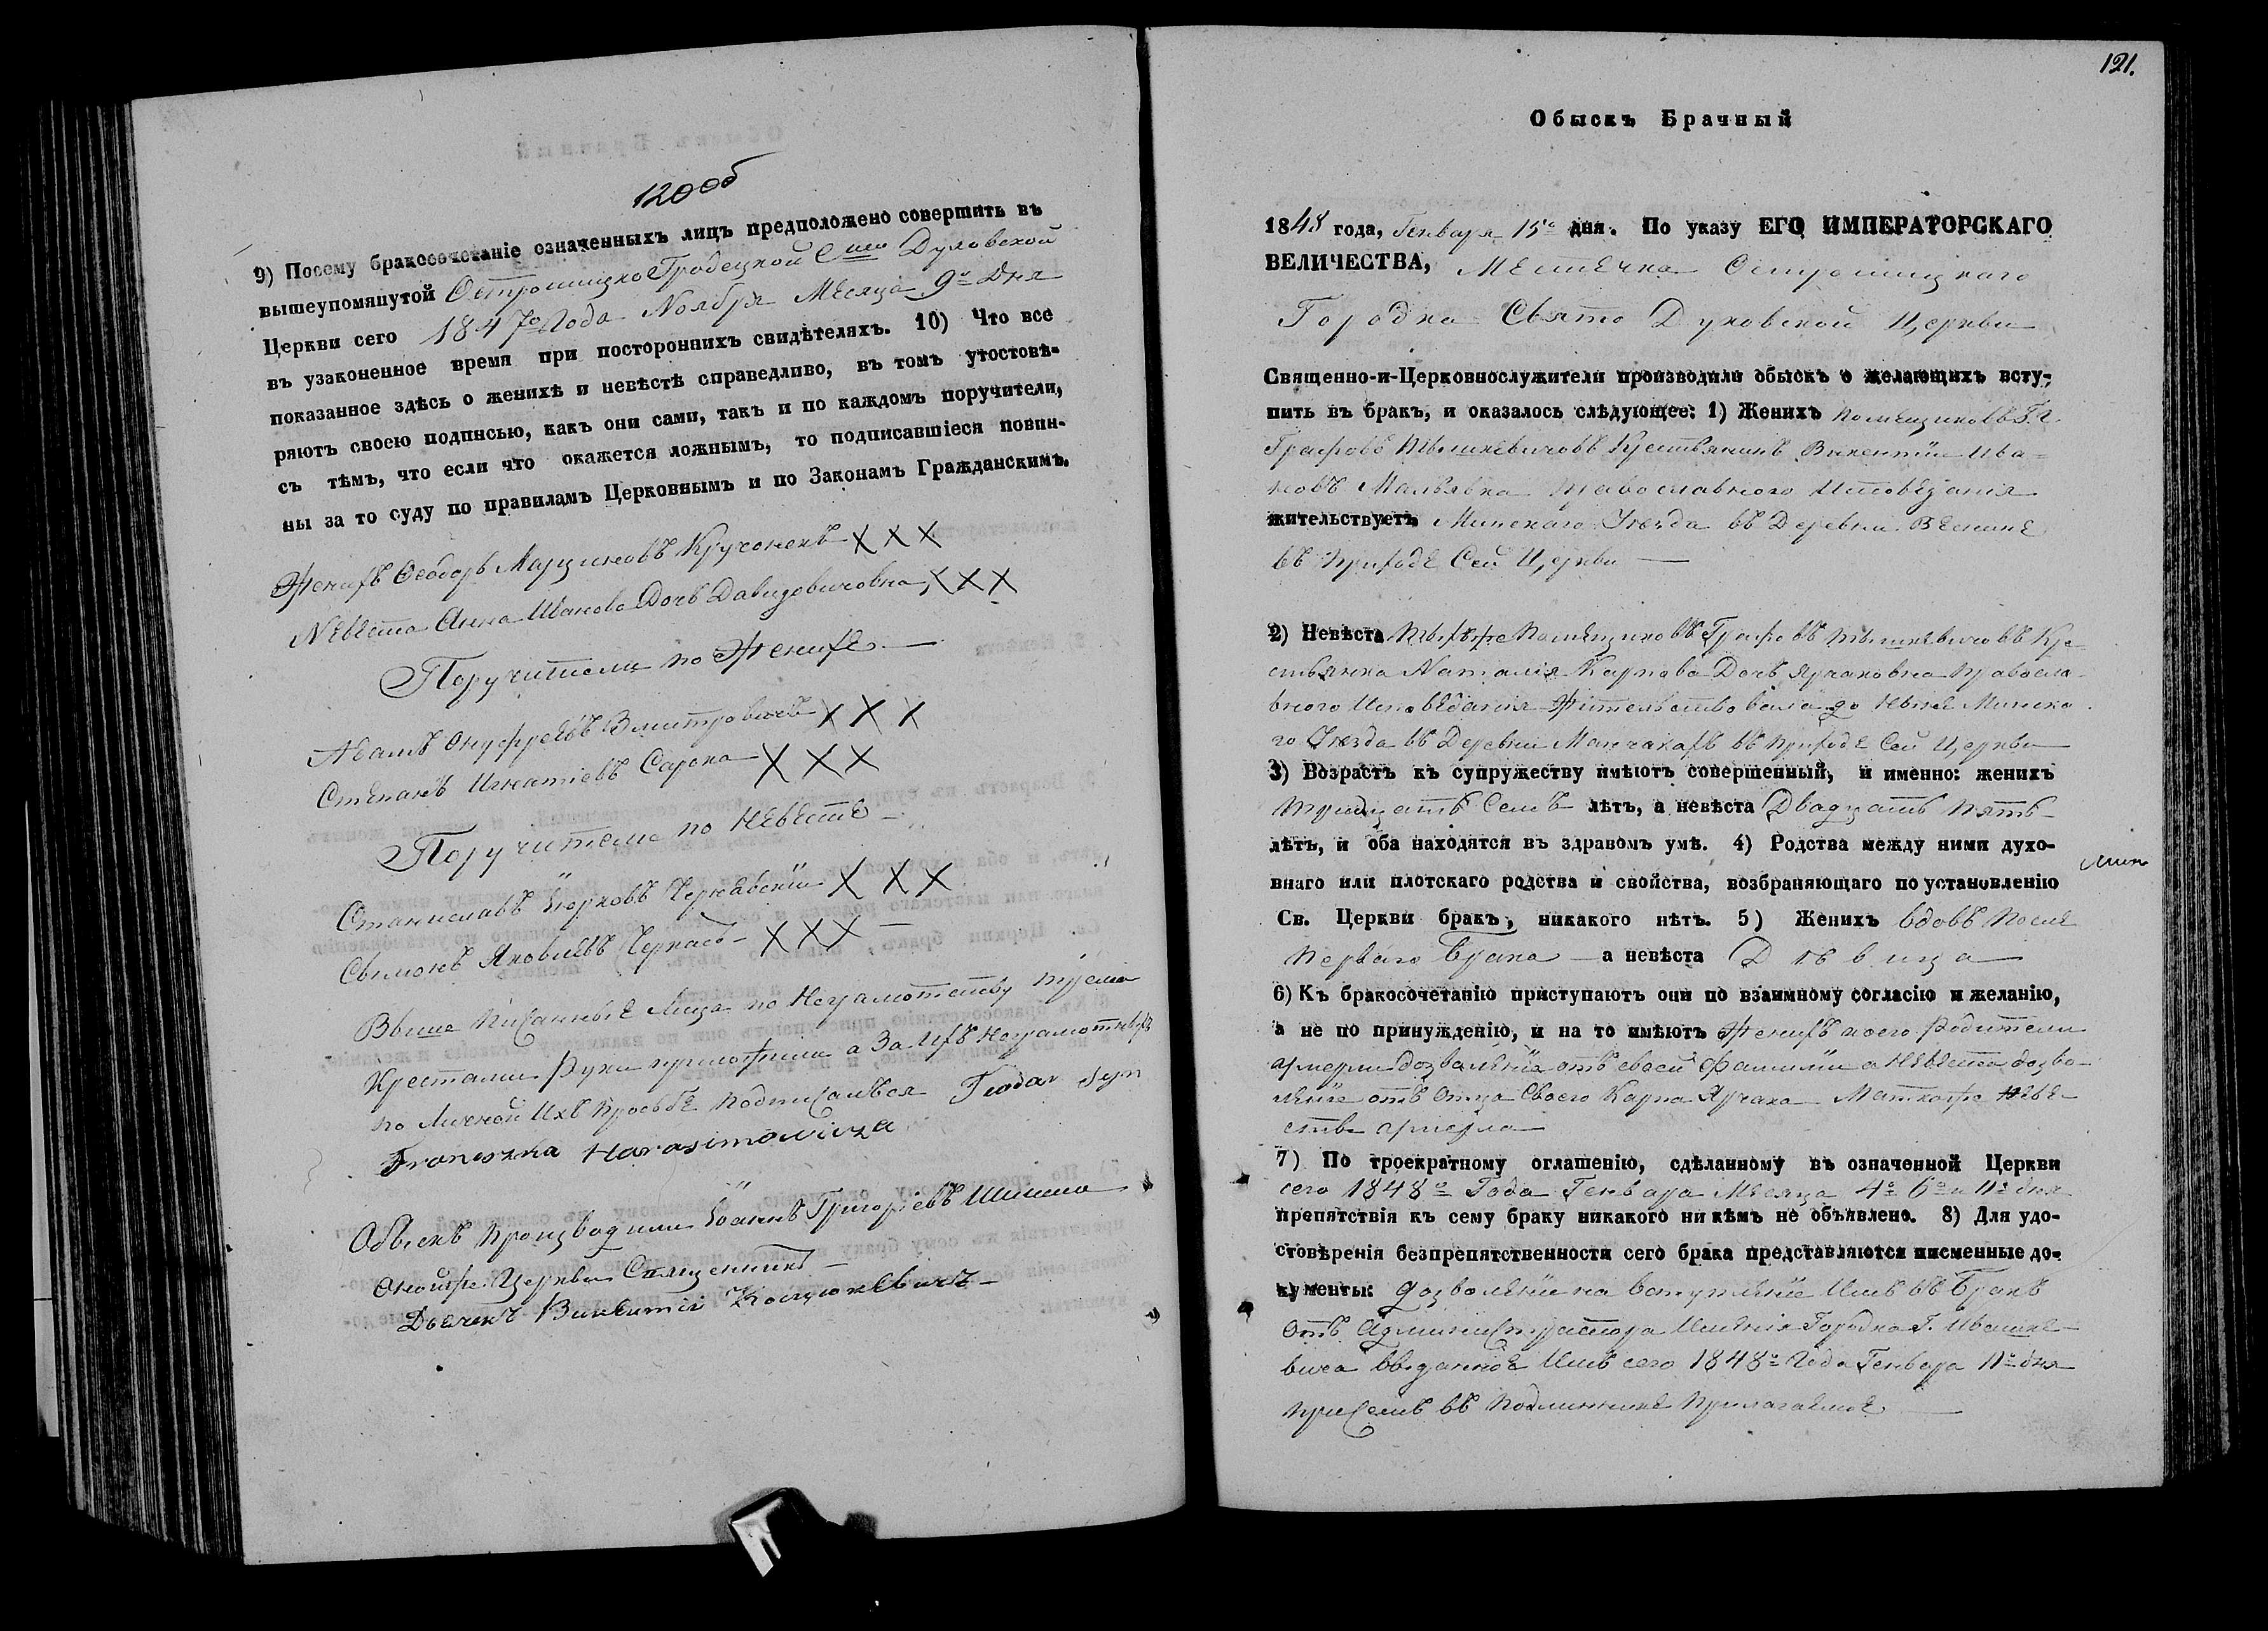 120 об
9) Посему бракосочетаніе означенныхъ лицъ предположено совершить въ
вышеупомянутой Острошицко Гродецкой Свято Духовской
Церкви сего 1847го Года Ноября Месяца 9го Дня
въ узаконенное время при постороннихъ свидѣтеляхъ. 10) Что все
показанное здѣсь о женихѣ и невѣстѣ справедливо, въ томъ утостовѣ-
ряютъ своею подписью, какъ они сами, такъ и по каждомъ поручители,
съ тѣмъ, что если что окажется ложнымъ, то подписавшіеся повин-
ны за то суду по правиламъ Церковнымъ и по Законамъ Гражданскимъ.
Женихъ Ѳеодоръ Марциновъ Кручонекъ X X X
Невѣста Анна Иванова Дочь Давидовичовна X X X
Поручители по Женихе
Адамъ Онуфріевъ X X X
Степанъ Игнатіевъ Сарока X X X
Поручители по Невѣсте
Станиславъ Юрковъ X X X
Сымонъ Яковлевъ X X X
Выше писанные Лица по Неграмотству тремя
Крестами руки приложили а За ихъ неграмотныхъ
по Личной Ихъ прозьбе подписался Teodor syn
Franciszka Harasimowicza
Обыскъ производили Іоаннъ Григоріевъ
Онойже Церкви Священникъ
Дьячекъ Викентій Костюкевичъ
121.
Обыскъ Брачный
1848 года, Генваря 15го дня. По указу ЕГО ИМПЕРАТОРСКАГО
ВЕЛИЧЕСТВА, Мѣстечка Острошицкаго
Городка Свято Духовской Церкви
Священно-и-Церковнослужители производили обыскъ о желающихъ всту-
пить въ бракъ, и оказалось слѣдующее: 1) Женихъ помещиковъ Г.г.
Графовъ Тышкевичовъ Крестьянинъ Викентій Ива-
новъ Малявка православного Исповѣданія
жительствуетъ Минскаго Уѣзда въ Деревни
въ приходе Сей Церкви
2) Невѣста Техъже помещиковъ Графовъ Тышкевичовъ Кре-
стьянка Наталія Карпова Дочь Ярчаковна православ-
ного Исповѣданія Жительствовала до ныне Минска-
го Уезда въ Деревни въ приходе Сей Церкви
3) Возрастъ къ супружеству имѣютъ совершенный, и именно: женихъ
тридцать Семь лѣтъ, а невѣста Двадцать пять
лѣтъ, и оба находятся въ здравомъ умѣ. 4) Родства между ними духо-
внаго или плотскаго родства и свойства, возбраняющаго по установленію
Св. Церкви бракъ, никакого нѣтъ. 5) Женихъ вдовъ после
перваго Брака а невѣста Дѣвица
6) Къ бракосочетанію приступаютъ они по взаимному согласію и желанію,
а не по принужденію, и на то имѣютъ Женихъ коего родители
умерли дозволеніе отъ своей фамиліи а Невѣста дозво-
леніе отъ отца Своего Карпа Ярчака Матка же Неве-
сты умерла
7) По троекратному оглашенію, сдѣланному въ означенной Церкви
сего 1848го Года Генваря Месяца 4го 6го и 11го дня
препятствія къ сему браку никакого ни кѣмъ не объявлено. 8) Для удо-
стовѣренія безпрепятственности сего брака представляются писменные до-
кументы: дозволеніе на вступленіе Имъ въ Бракъ
отъ Администратора Именія Городка Г. Ивашке-
вича выданное Имъ сего 1848го Года Генваря 11го дня
при Семъ въ подлиннике прилагаемое